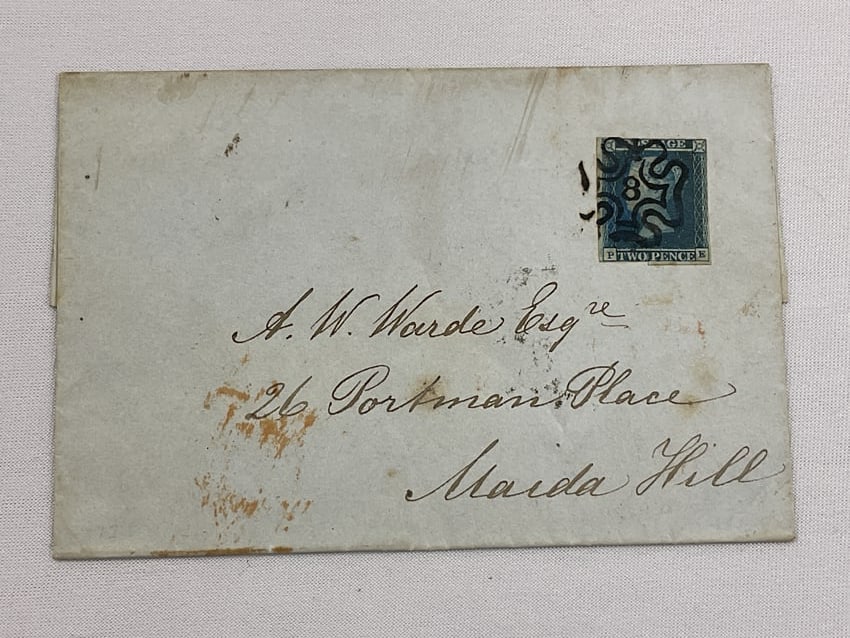 GE
8
P TWO PENCE E
A. W. Warde Esqre
26 Portman Place
Maida Hill